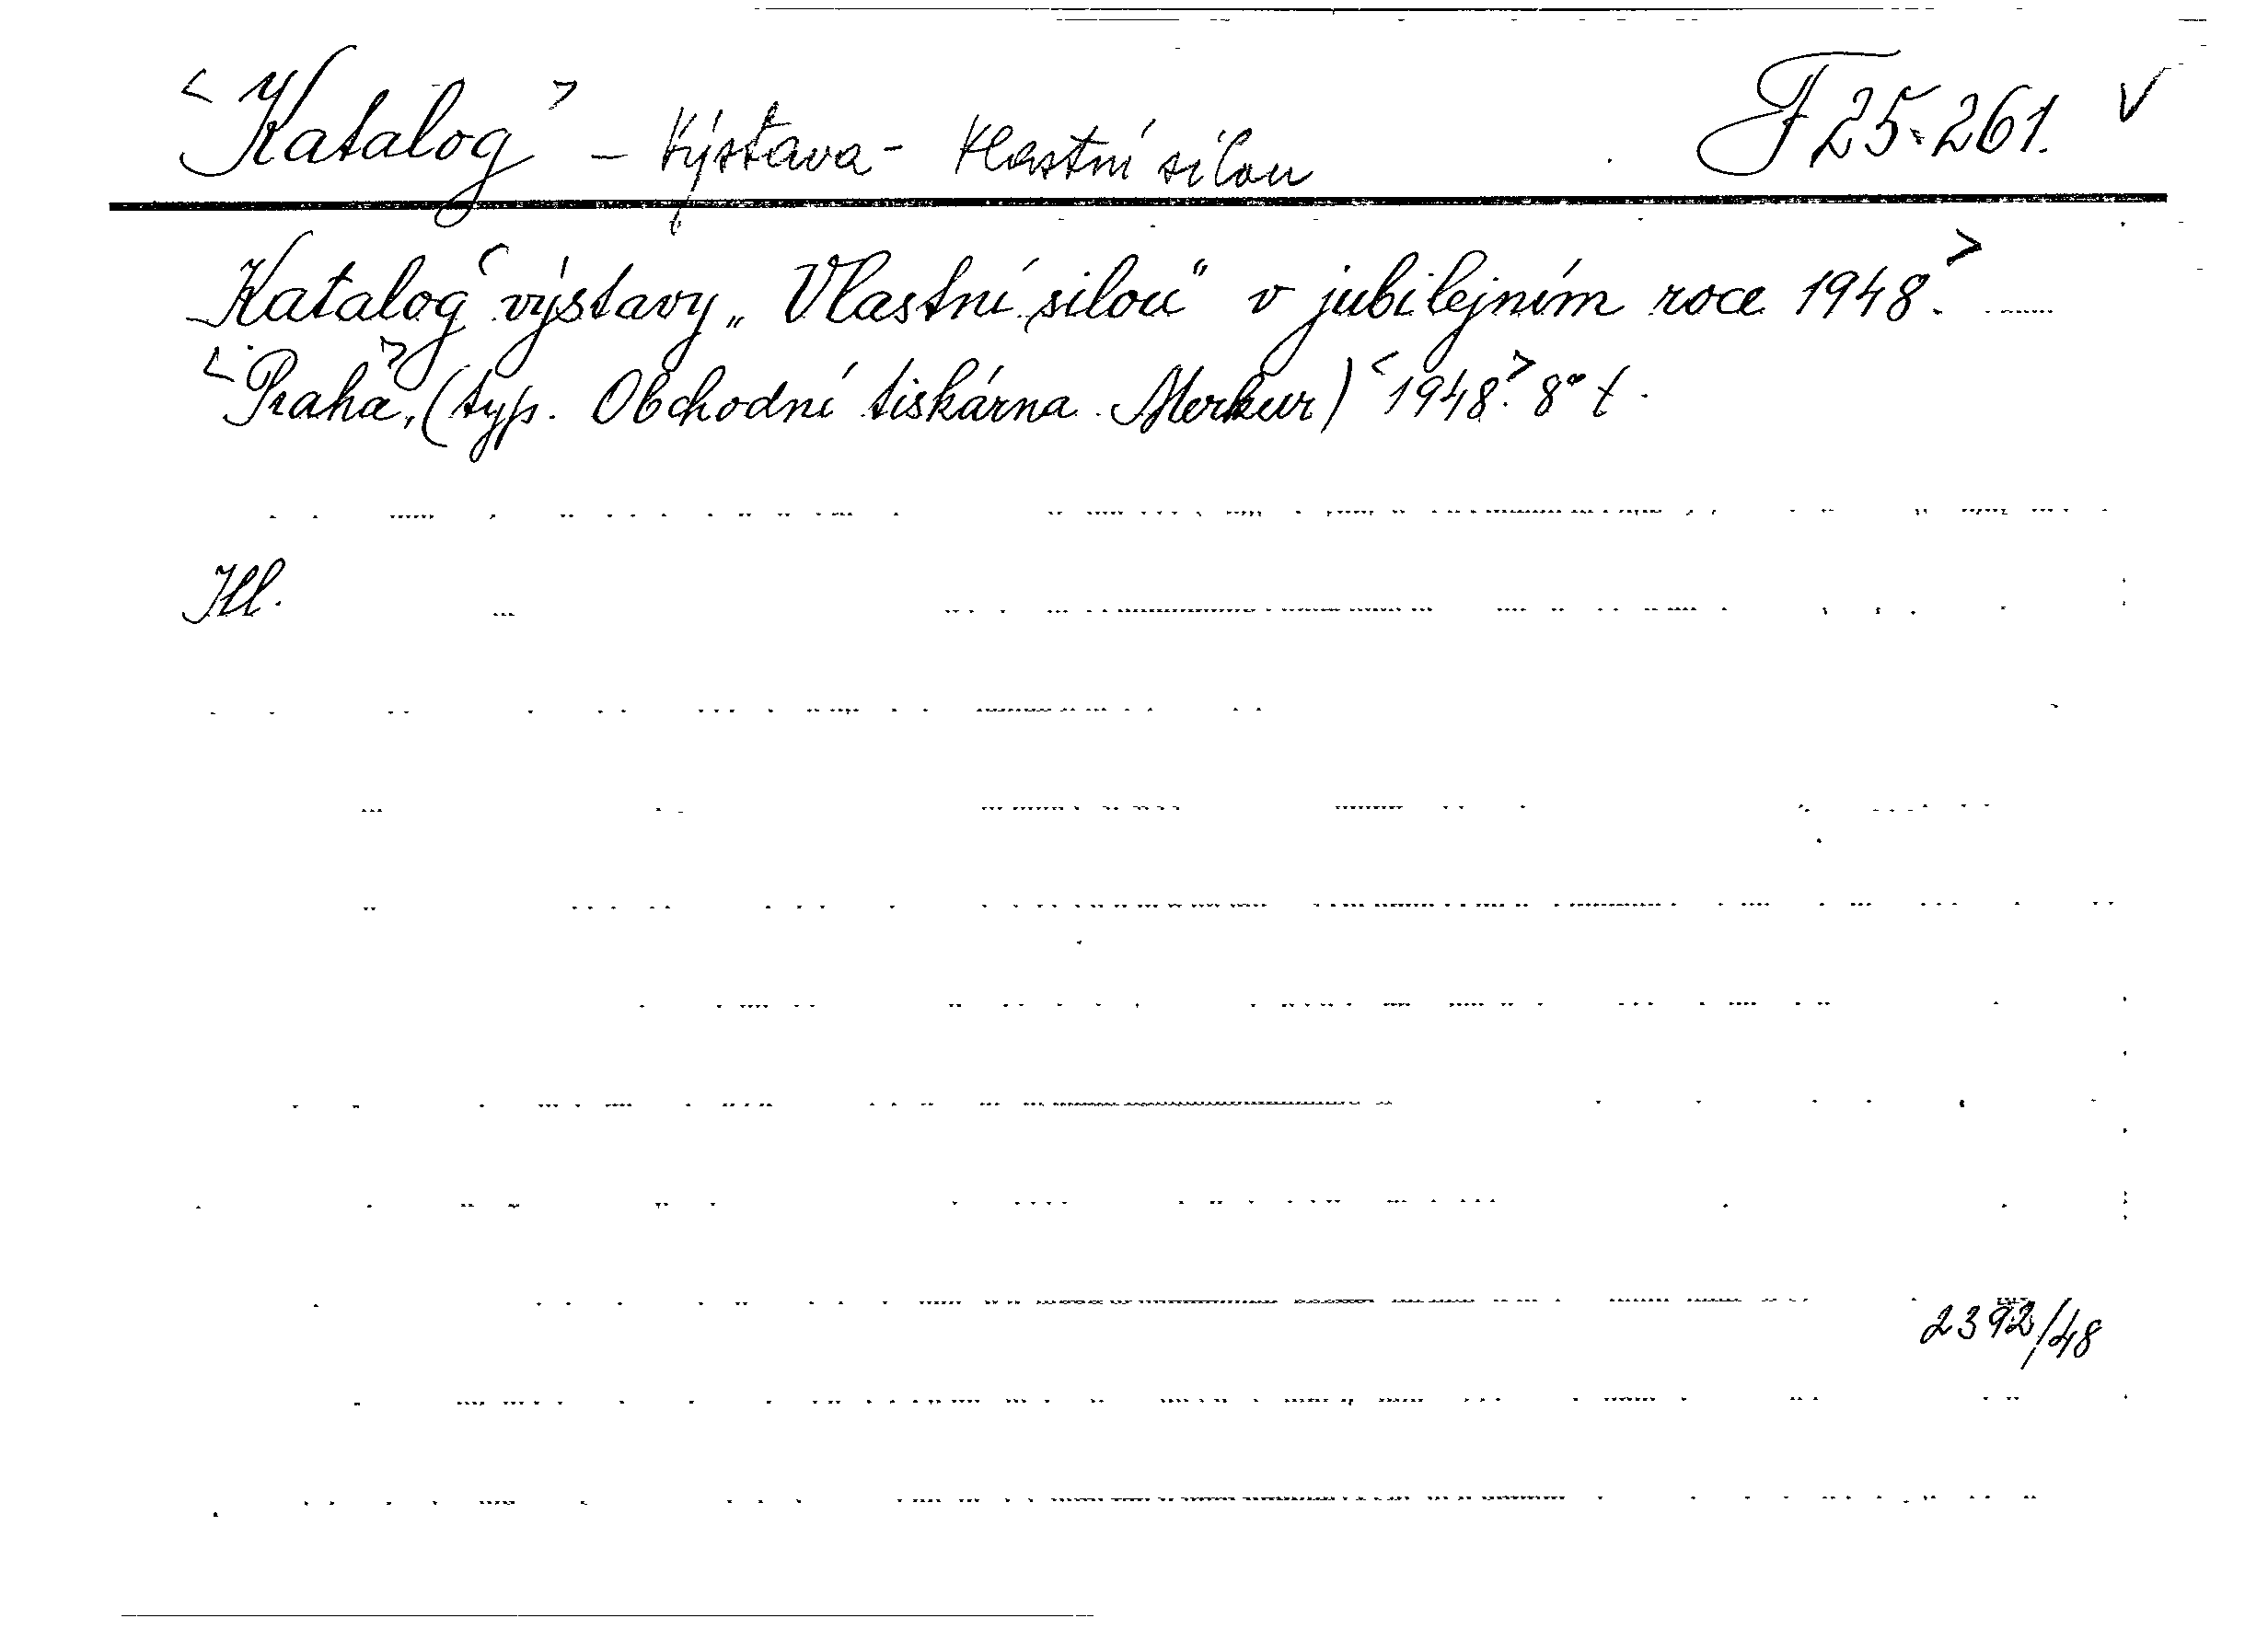 <Katalog> - Výstava - Vlastní silou F 25.261. V
Katalog <výstavy „Vlastní silou" v jubilejním roce 1948.>
<Praha>, (typ. Obchodní tiskárna Merkur) <1948>. 8° t.
Kl.
2392/48